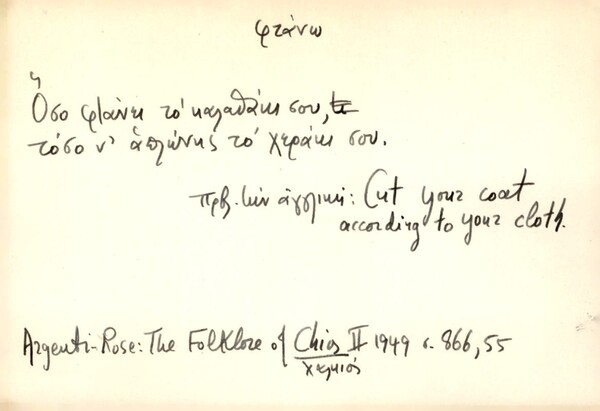 φτάνω
Ὅσο φτάνει τὸ καλαθάκι σου,
τόσο ν' ἁπλώνῃς τὸ χεράκι σου.
πρβ. τὴν ἀγγλική: Cut your coat
according to your cloth.
Argenti-Rose: The Folklore of Chios II 1949 σ. 866, 55